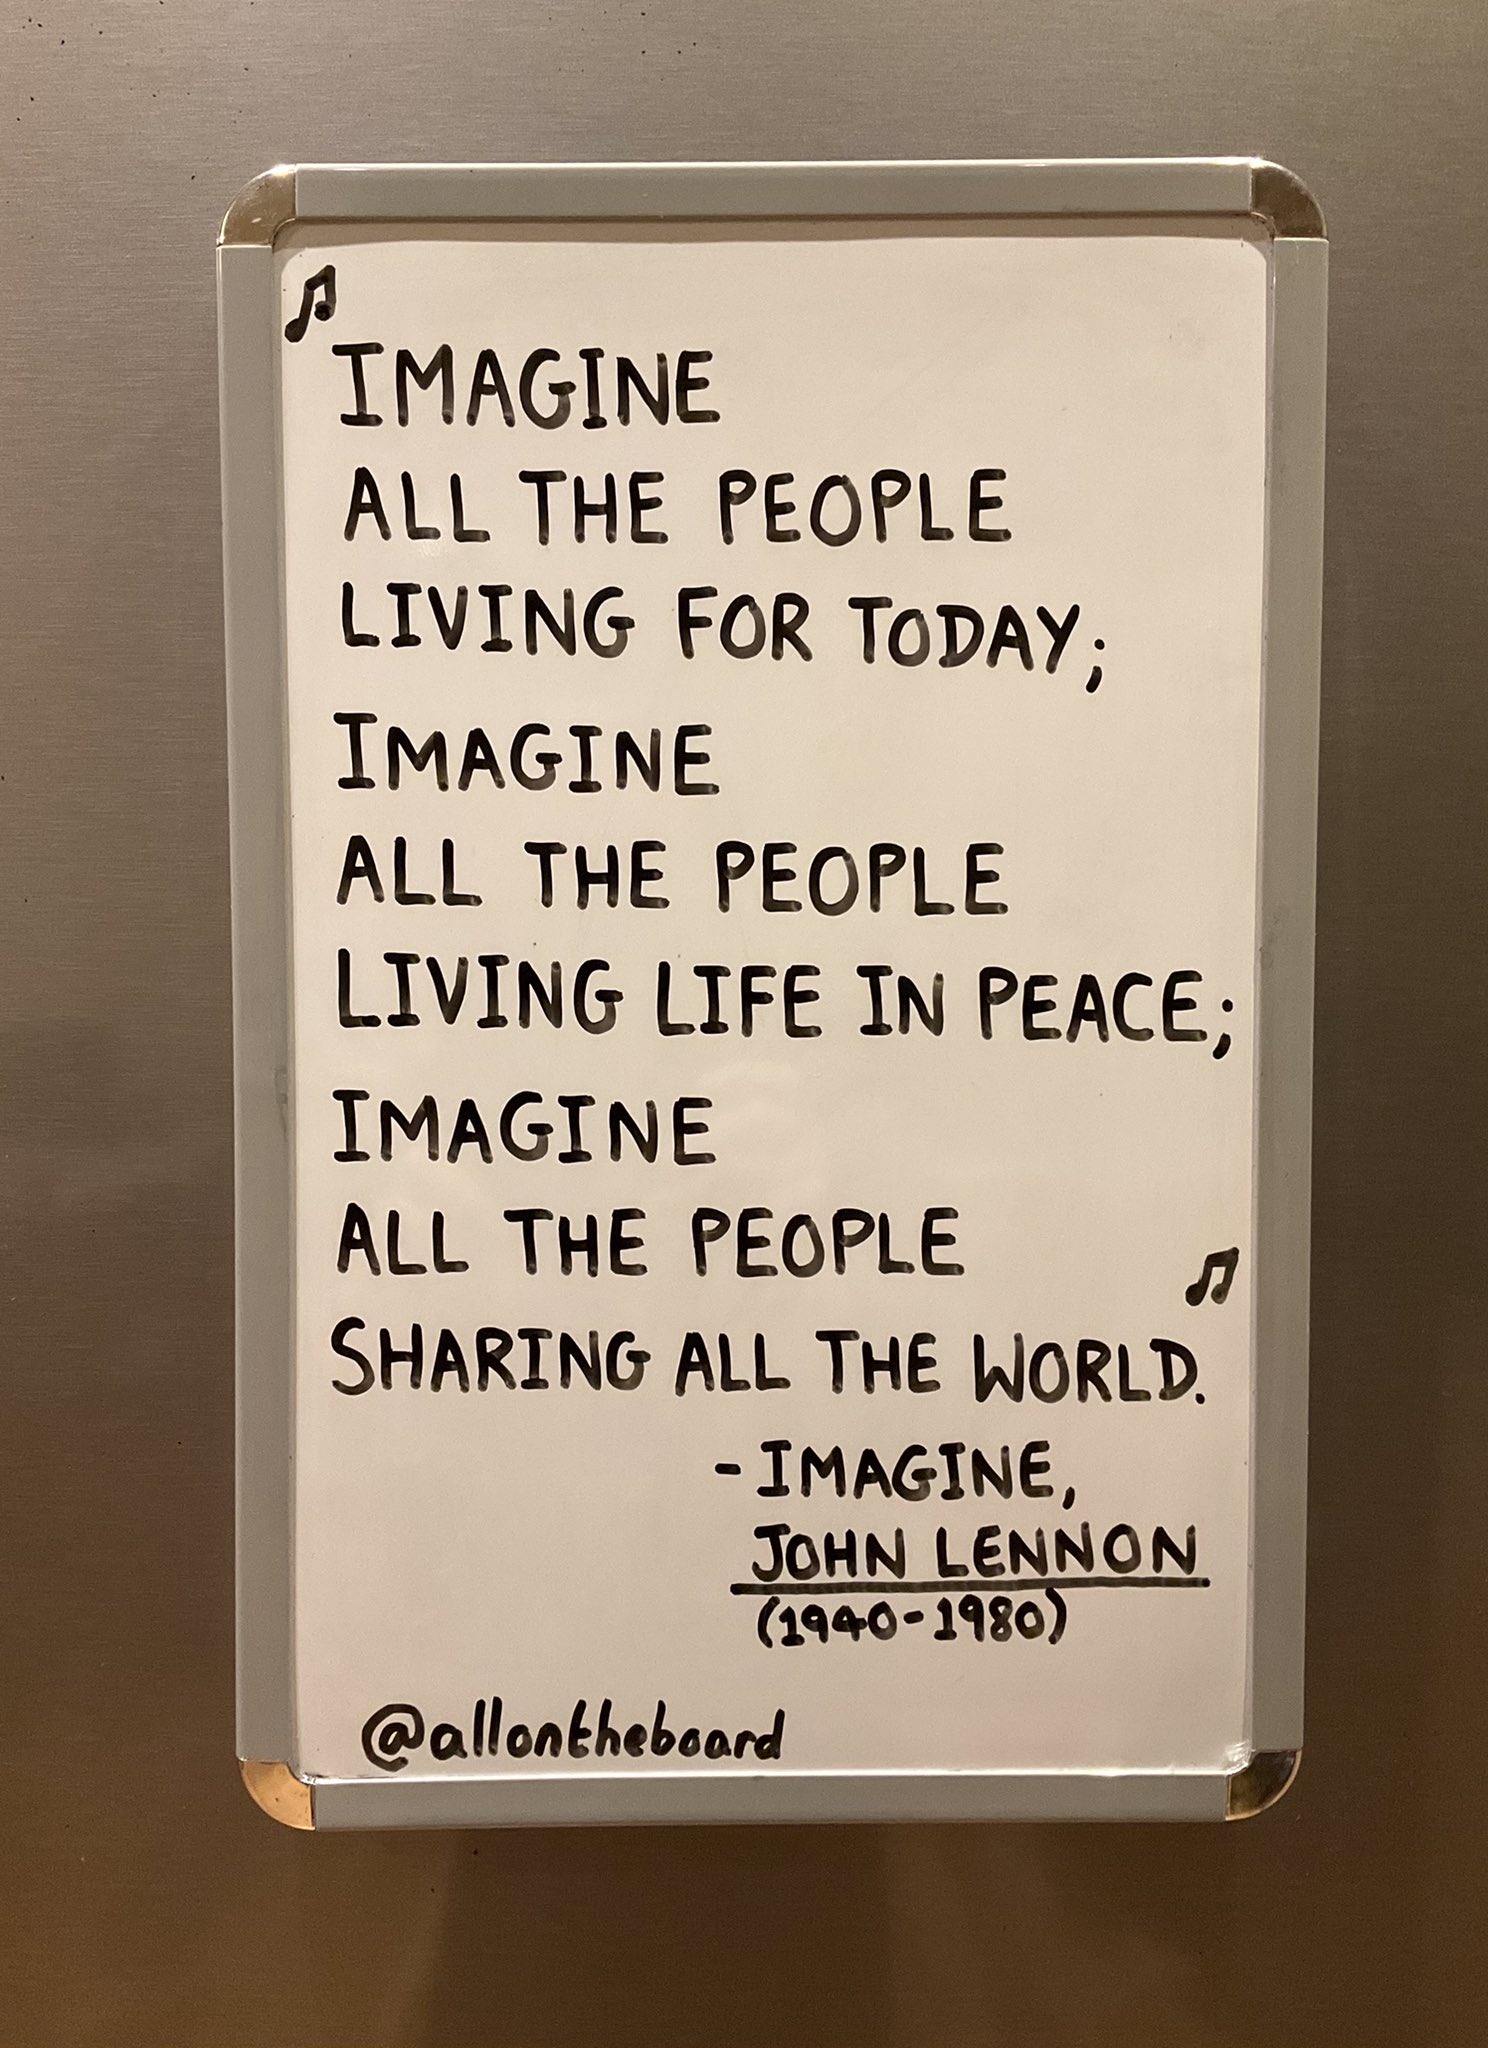 IMAGINE
ALL THE PEOPLE
LIVING FOR TODAY;
IMAGINE
ALL THE PEOPLE
LIVING LIFE IN PEACE;
IMAGINE
ALL THE PEOPLE
SHARING ALL THE WORLD.
- IMAGINE,
JOHN LENNON
(1940-1980)
@allontheboard